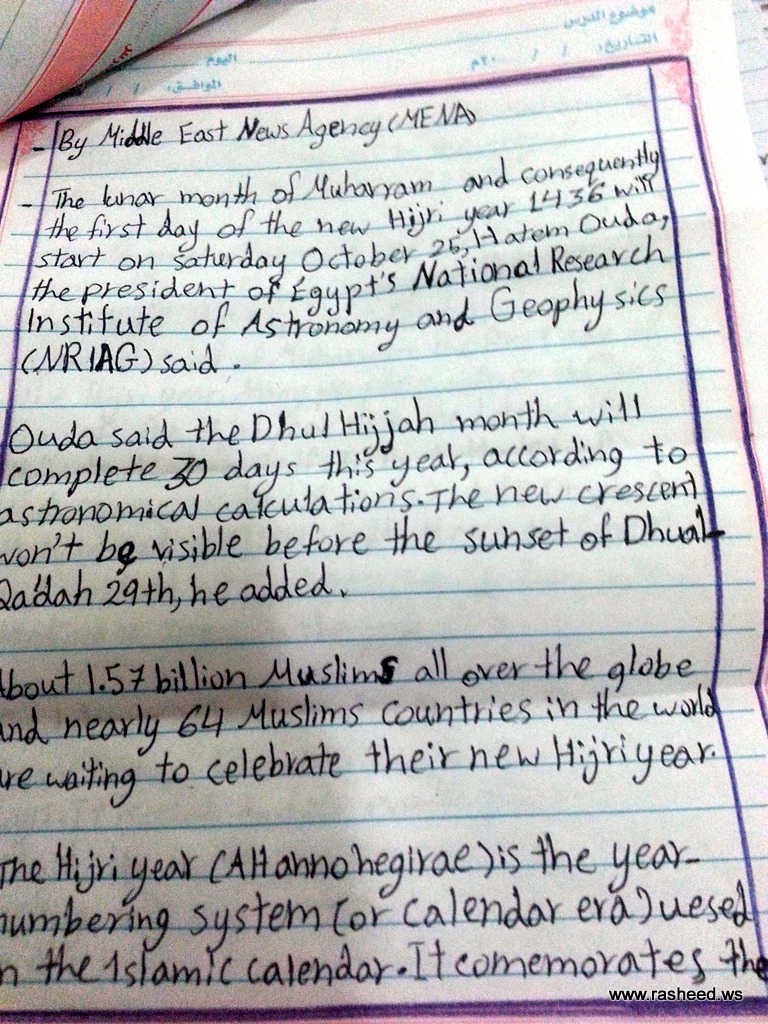 موضوع الدرس
التاريخ: / / ٢٠م
اليوم
الموافق: / /
- By Middle East News Agency (MENA)
- The lunar month of Muharram and consequently
the first day of the new Hijri year 1436 will
start on saturday October 25, Hatem Ouda,
the president of Egypt's National Research
Institute of Astronomy and Geophysics
(NRIAG) said.
Ouda said the Dhul Hijjah month will
complete 30 days this year, according to
astronomical calculations. The new crescent
won't be visible before the sunset of Dhual-
Qa'dah 29th, he added.
About 1.57 billion Muslims all over the globe
and nearly 64 Muslims countries in the world
are waiting to celebrate their new Hijri year.
The Hijri year (AH anno hegirae) is the year-
numbering system (or calendar era) uesed
in the Islamic calendar. It comemorates the
www.rasheed.ws